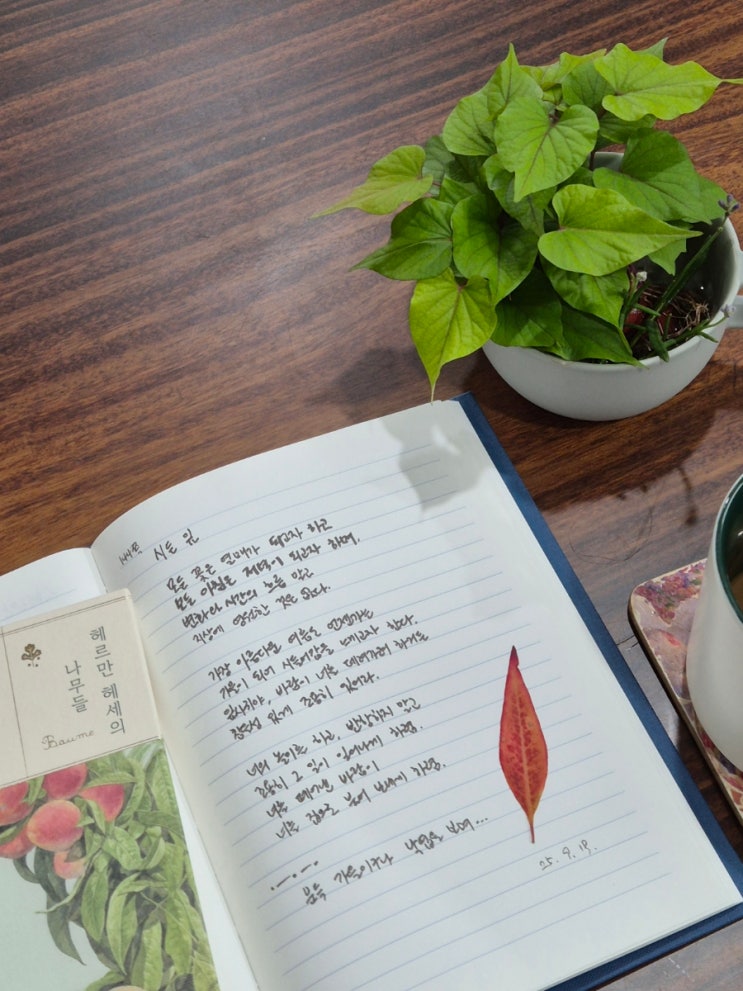 헤르만 헤세의
나무들
Baume
144쪽 시든 잎
모든 꽃은 열매가 되고자 하고
모든 아침은 저녁이 되고자 하며,
변화와 시간의 흐름 말고
지상에 영원한 것은 없다.
가장 아름다운 여름도 언젠가는
가을이 되어 시들어감을 느끼고자 한다.
잎사귀야, 바람이 너를 데려가려 하거든
참을성 있게 조용히 있어라.
너의 놀이를 하고, 반항하지 말고
조용히 그 일이 일어나게 하렴.
너를 떼어낸 바람이
너를 집으로 불어 보내게 하렴.
문득 가을이구나 낙엽을 보며...
25. 9. 19.